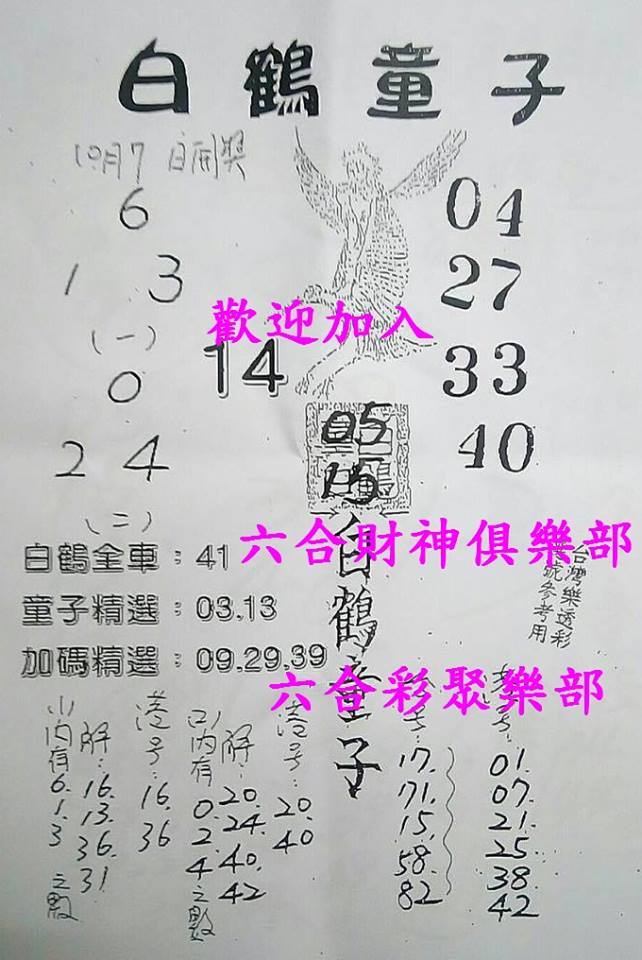 白鶴童子
10月7日開獎
6
1 3
(一)
0
2 4
(二)
04
27
33
40
歡迎加入
14
05
15
白鶴童子
六合財神俱樂部
白鶴全車:41
童子精選:03.13
加碼精選:09.29.39
台灣樂透彩
參考用
六合彩聚樂部
(一)內有6.1.3之數
解:16.13.36.31
港号:16.36
(二)內有0.2.4之數
解:20.24.40.42
港号:20.40
17.
71.
15.
58.
82
01.
07.
21.
25
38
42